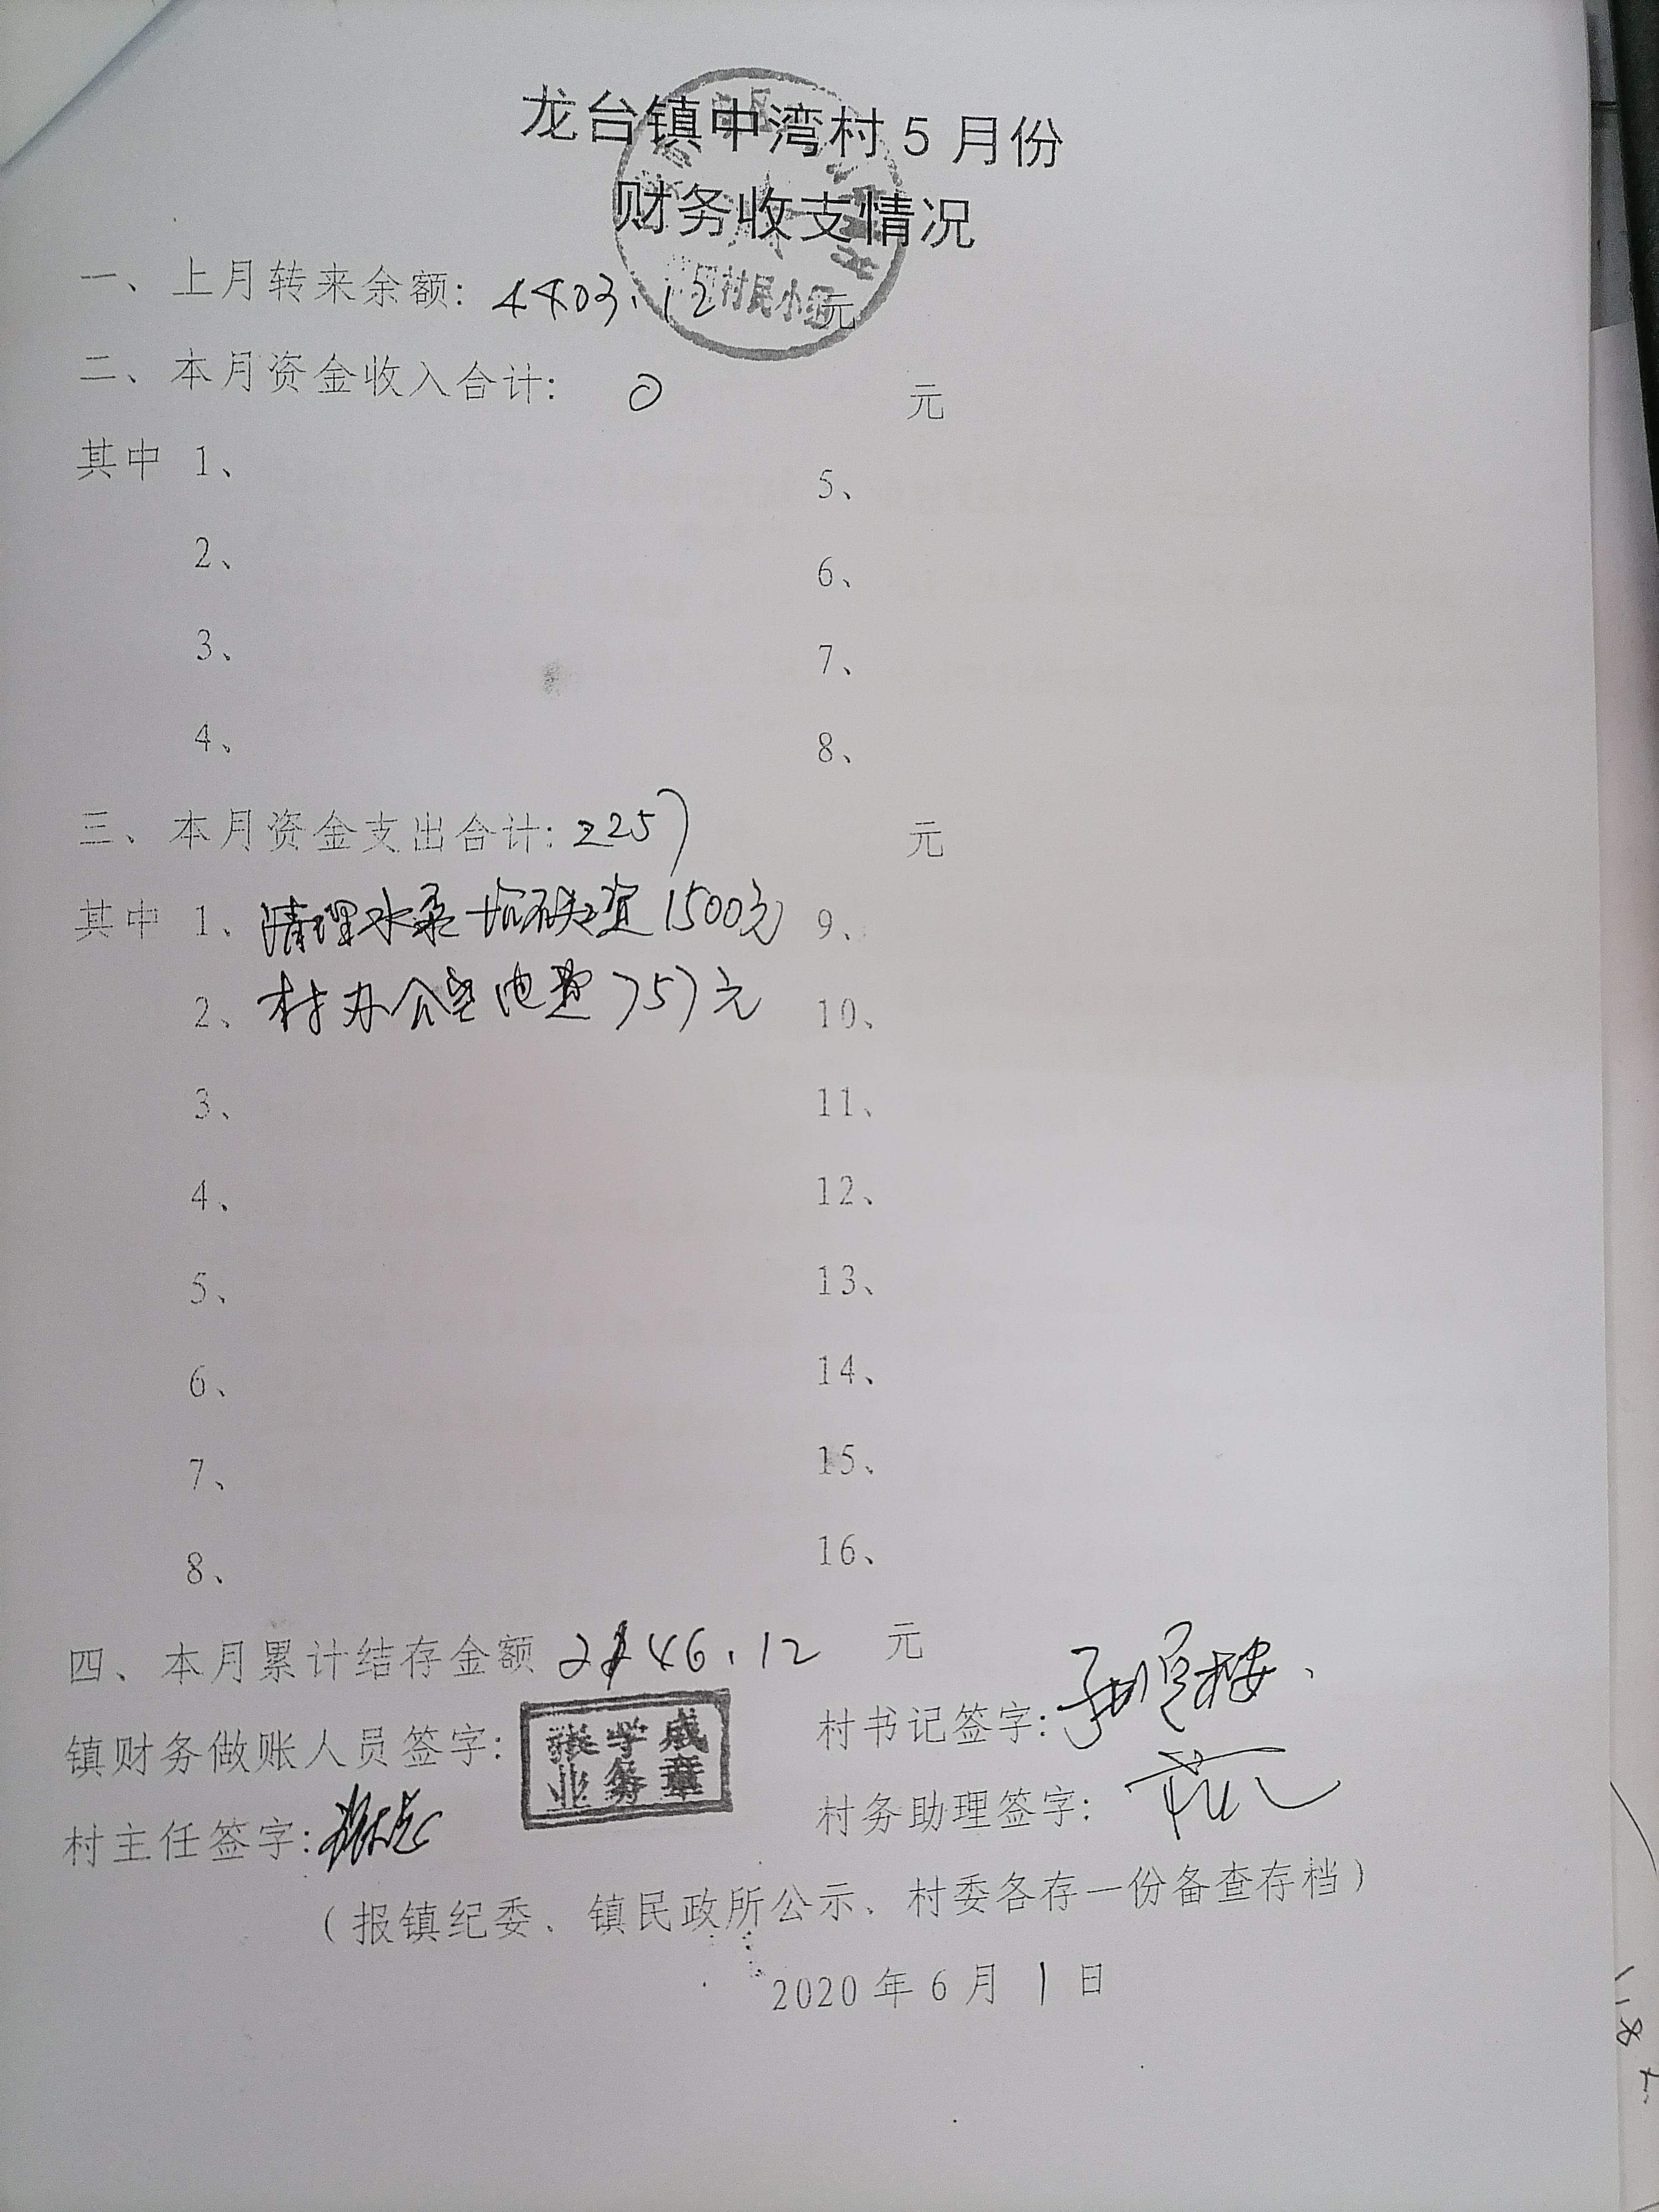 龙台镇中湾村5月份
财务收支情况
村民小组
一、上月转来余额: 4403.12 元
二、本月资金收入合计: 0 元
其中 1、 5、
2、 6、
3、 7、
4、 8、
三、本月资金支出合计: 2257 元
其中 1、清理水 1500元 9、
2、村办公室电费757元 10、
3、 11、
4、 12、
5、 13、
6、 14、
7、 15、
8、 16、
四、本月累计结存金额 2146.12 元
镇财务做账人员签字: 村书记签字:
张学成
业务章
村主任签字: 村务助理签字:
(报镇纪委、镇民政所公示、村委各存一份备查存档)
2020年6月1日